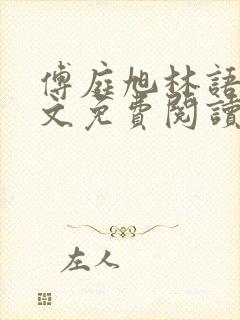 傅庭旭林語
文免費閱讀
左人